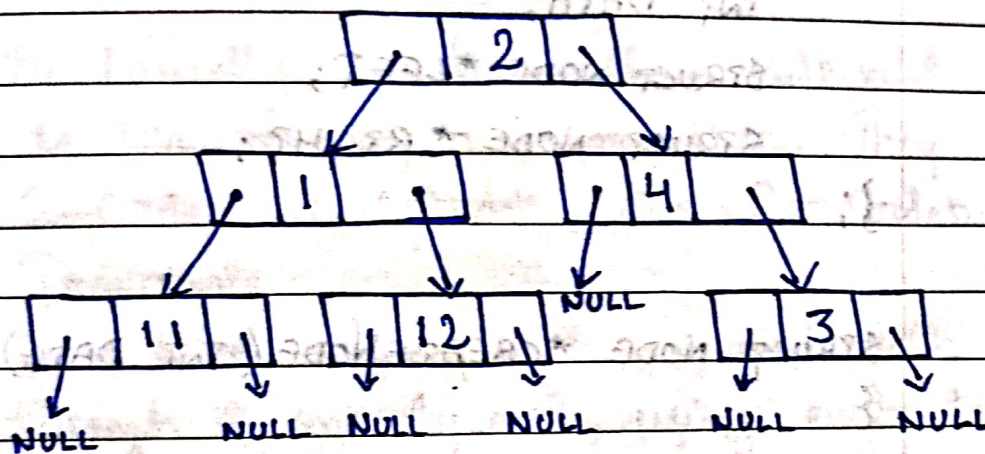 2
1 4
NULL
11 12 3
NULL NULL NULL NULL NULL NULL